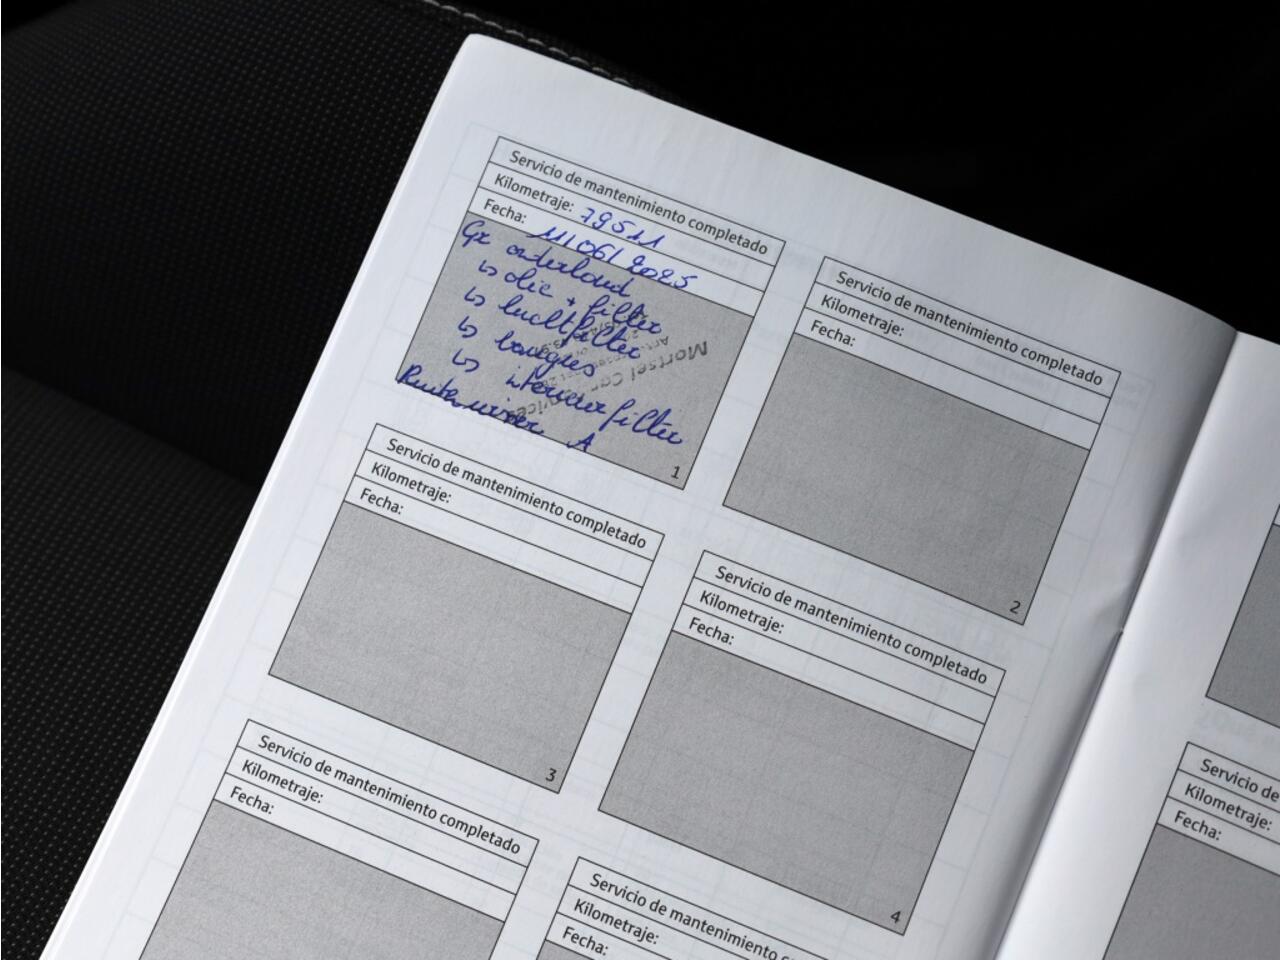 Servicio de mantenimiento completado
Kilometraje: 79511
Fecha: 11/06/2025
Gr onderhoud
↳ olie + filter
↳ luchtfilter
↳ bougies
↳ interieurfilter
Ruitenwisser A
Mortsel Car Services
1
Servicio de mantenimiento completado
Kilometraje:
Fecha:
2
Servicio de mantenimiento completado
Kilometraje:
Fecha:
3
Servicio de mantenimiento completado
Kilometraje:
Fecha:
4
Servicio de mantenimiento completado
Kilometraje:
Fecha:
Servicio de mantenimiento comple
Kilometraje:
Fecha:
Servicio de
Kilometraje:
Fecha: